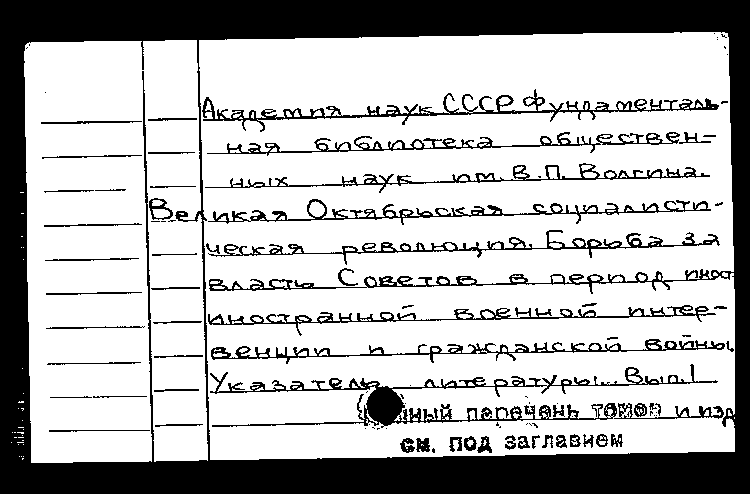 Академия наук СССР Фундаменталь-
ная библиотека обществен-
ных наук им. В.П. Волгина.
Великая Октябрьская социалисти-
ческая революция. Борьба за
власть Советов в период иност
иностранной военной интер-
венции и гражданской войны.
Указатель литературы.. Вып.1
ный перечень томов и изд
см. под заглавием